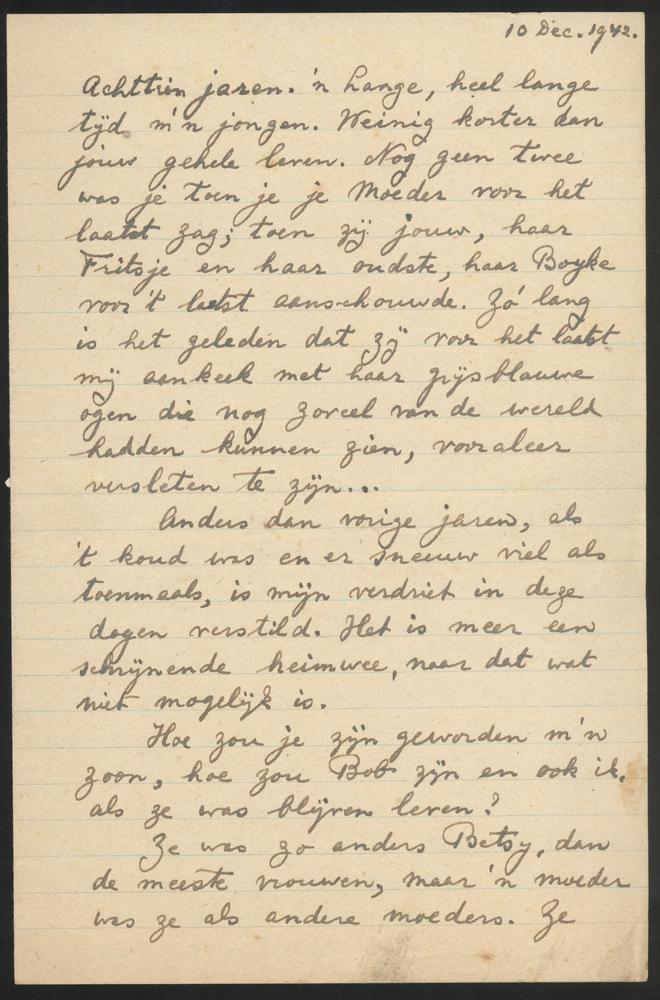 10 Dec. 1942.
Achttien jaren. 'n Lange, heel lange
tijd m'n jongen. Weinig korter dan
jouw gehele leven. Nog geen twee
was je toen je je Moeder voor het
laatst zag; toen zij jouw, haar
Fritsje en haar oudste, haar Boyke
voor 't laatst aanschouwde. Zó lang
is het geleden dat zij voor het laatst
mij aankeek met haar grijsblauwe
ogen die nog zoveel van de wereld
hadden kunnen zien, vooraleer
versleten te zijn...
Anders dan vorige jaren, als
't koud was en er sneeuw viel als
toenmaals, is mijn verdriet in deze
dagen verstild. Het is meer een
schrijnende heimwee, naar dat wat
niet mogelijk is.
Hoe zou je zijn geworden m'n
zoon, hoe zou Bob zijn en ook ik,
als ze was blijven leven?
Ze was zo anders Betsy, dan
de meeste vrouwen, maar 'n moeder
was ze als andere moeders. Ze